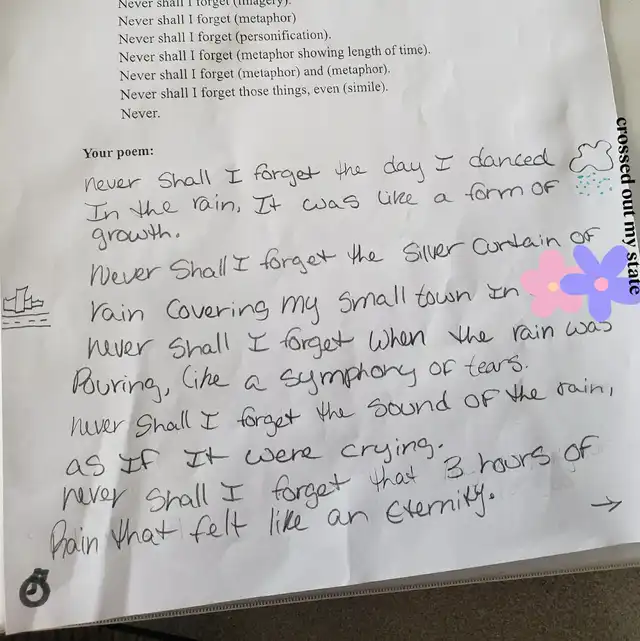 Never shall I forget (imagery).
Never shall I forget (metaphor)
Never shall I forget (personification).
Never shall I forget (metaphor showing length of time).
Never shall I forget (metaphor) and (metaphor).
Never shall I forget those things, even (simile).
Never.
Your poem:
never shall I forget the day I danced
In the rain, It was like a form of
growth.
Never Shall I forget the silver curtain of
rain covering my small town In
never shall I forget when the rain was
Pouring, like a symphony of tears.
never shall I forget the sound of the rain,
as If It were crying.
never shall I forget that 3 hours of
Rain that felt like an Eternity.
crossed out my state